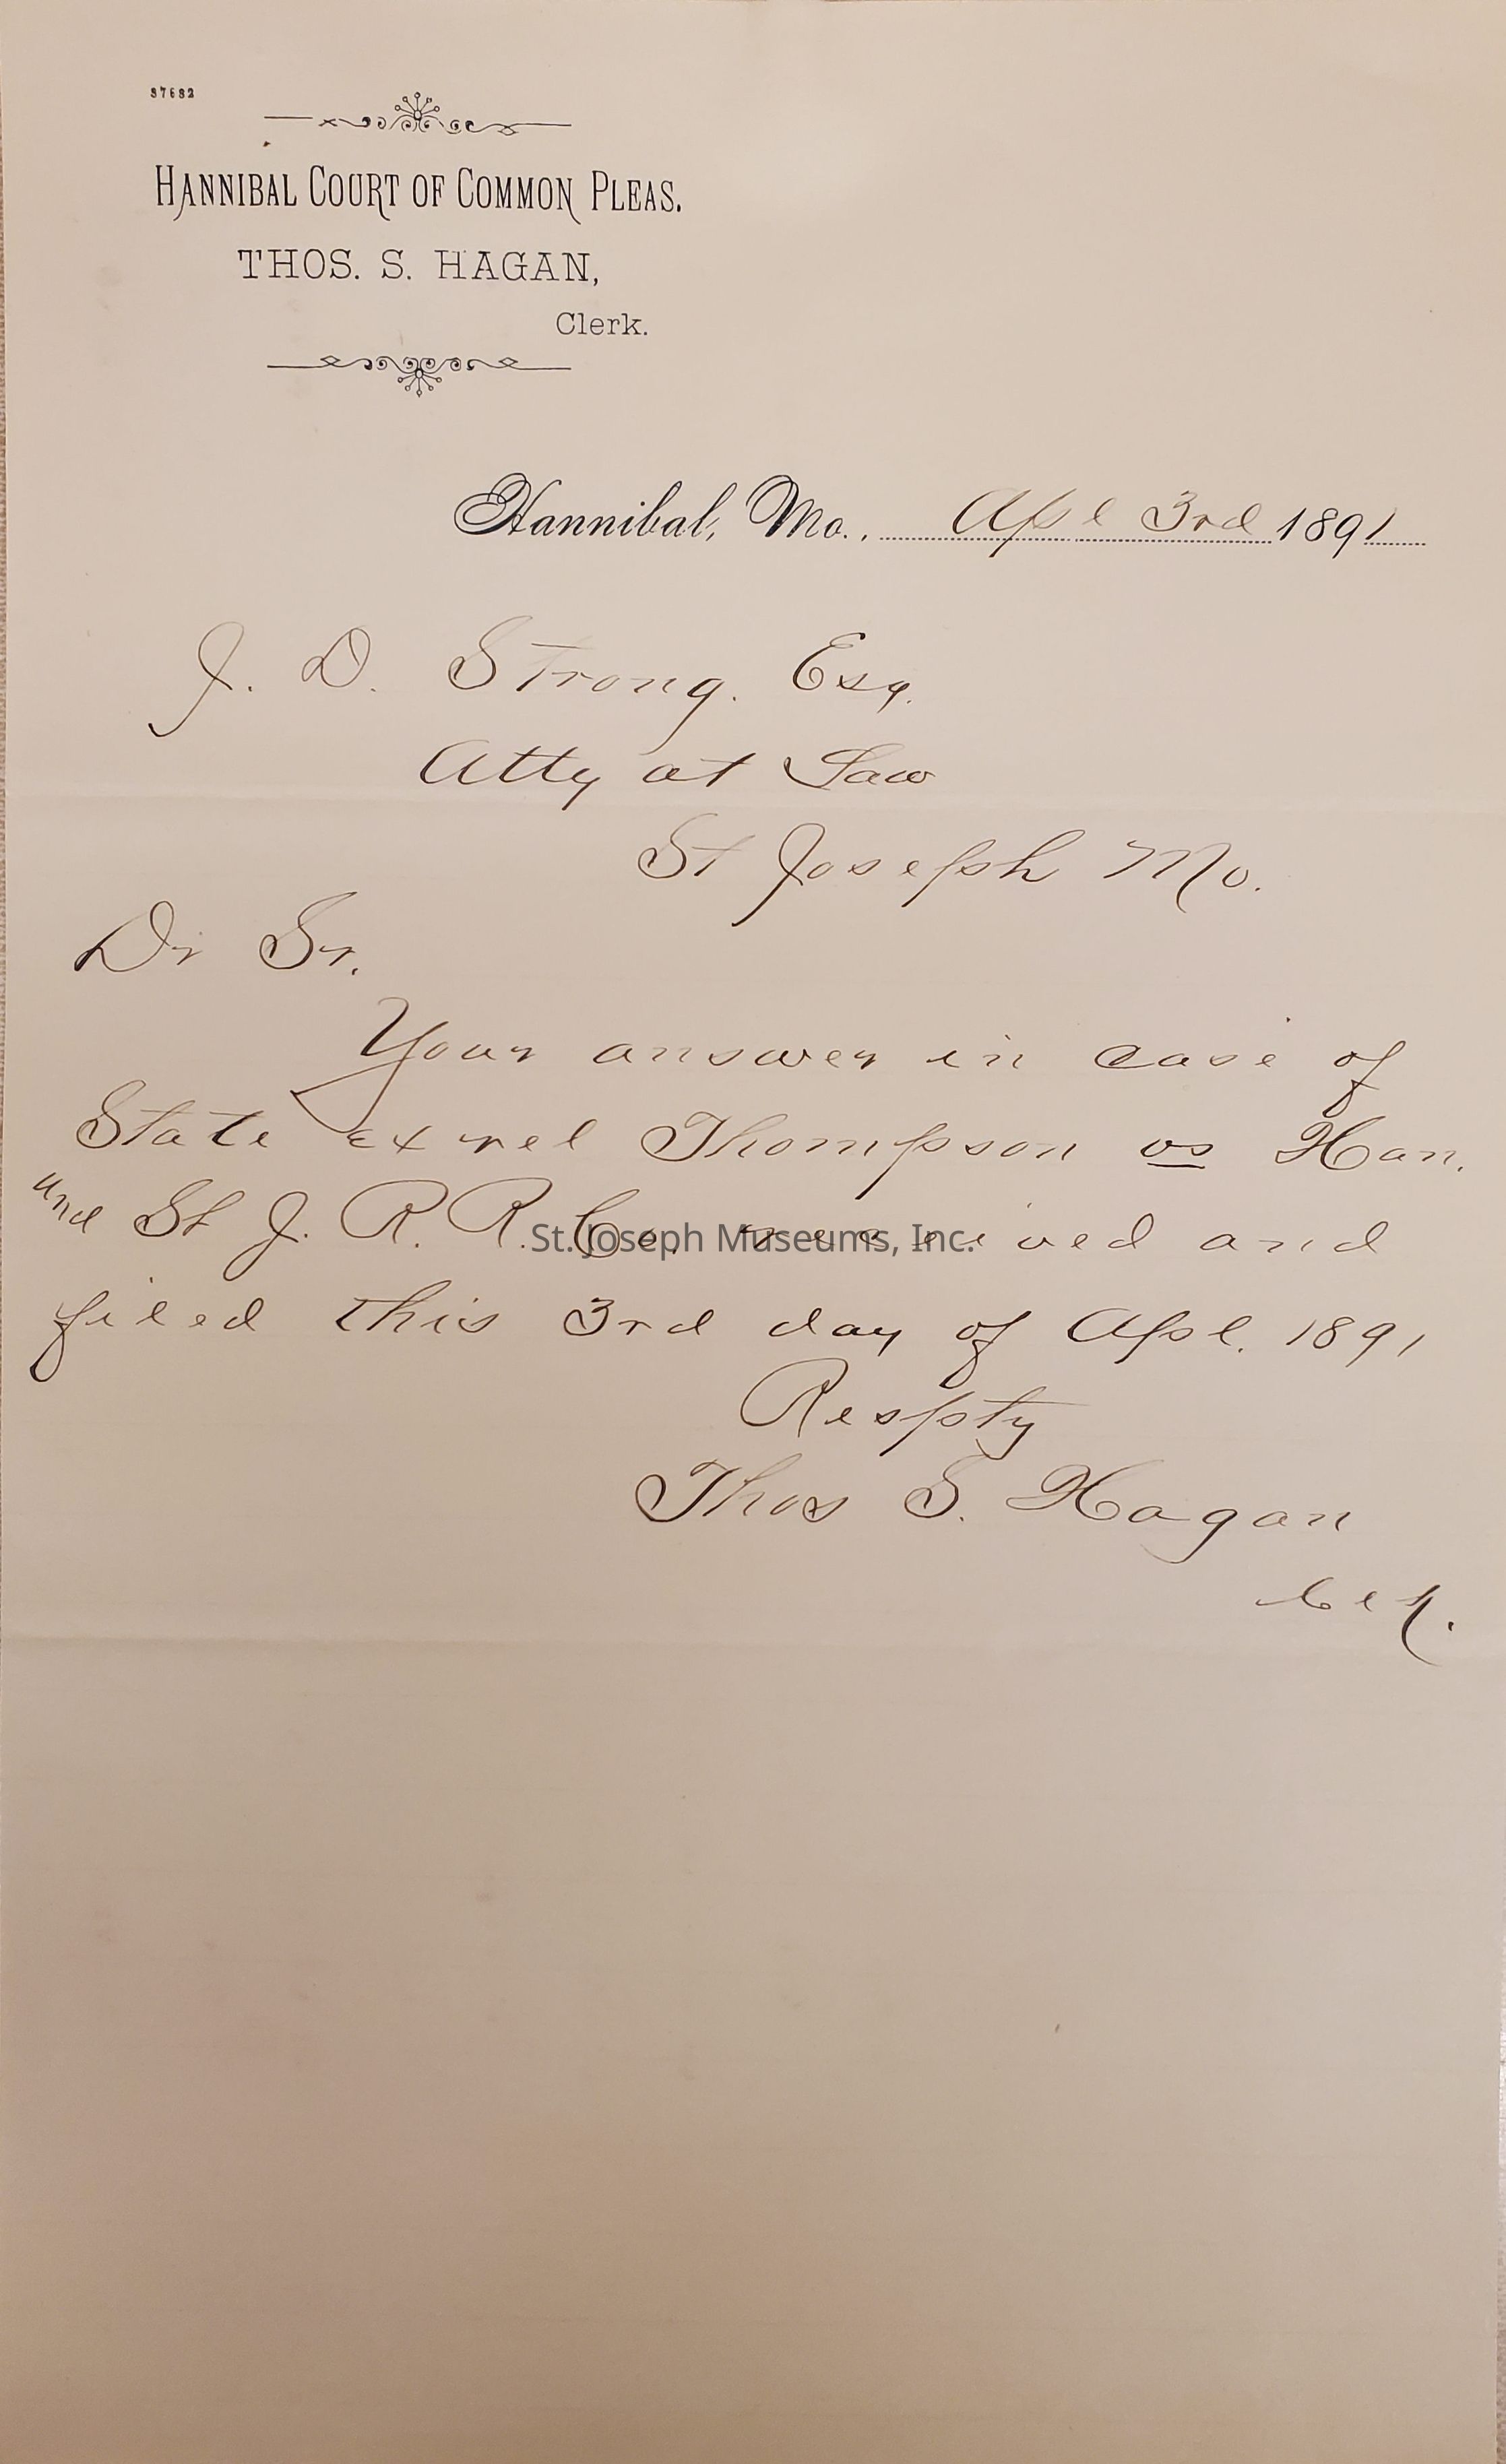 37682
HANNIBAL COURT OF COMMON PLEAS.
THOS. S. HAGAN,
Clerk.
Hannibal, Mo., Apl 3rd 1891
J. D. Strong. Esq.
Atty at Law
St Joseph Mo.
Dr Sr.
Your answer in case of
State ex rel Thompson vs Han.
and St J. R. R. Co. received and
St. Joseph Museums, Inc.
filed this 3rd day of Apl. 1891
Respty
Thos S. Hagan
Clk.